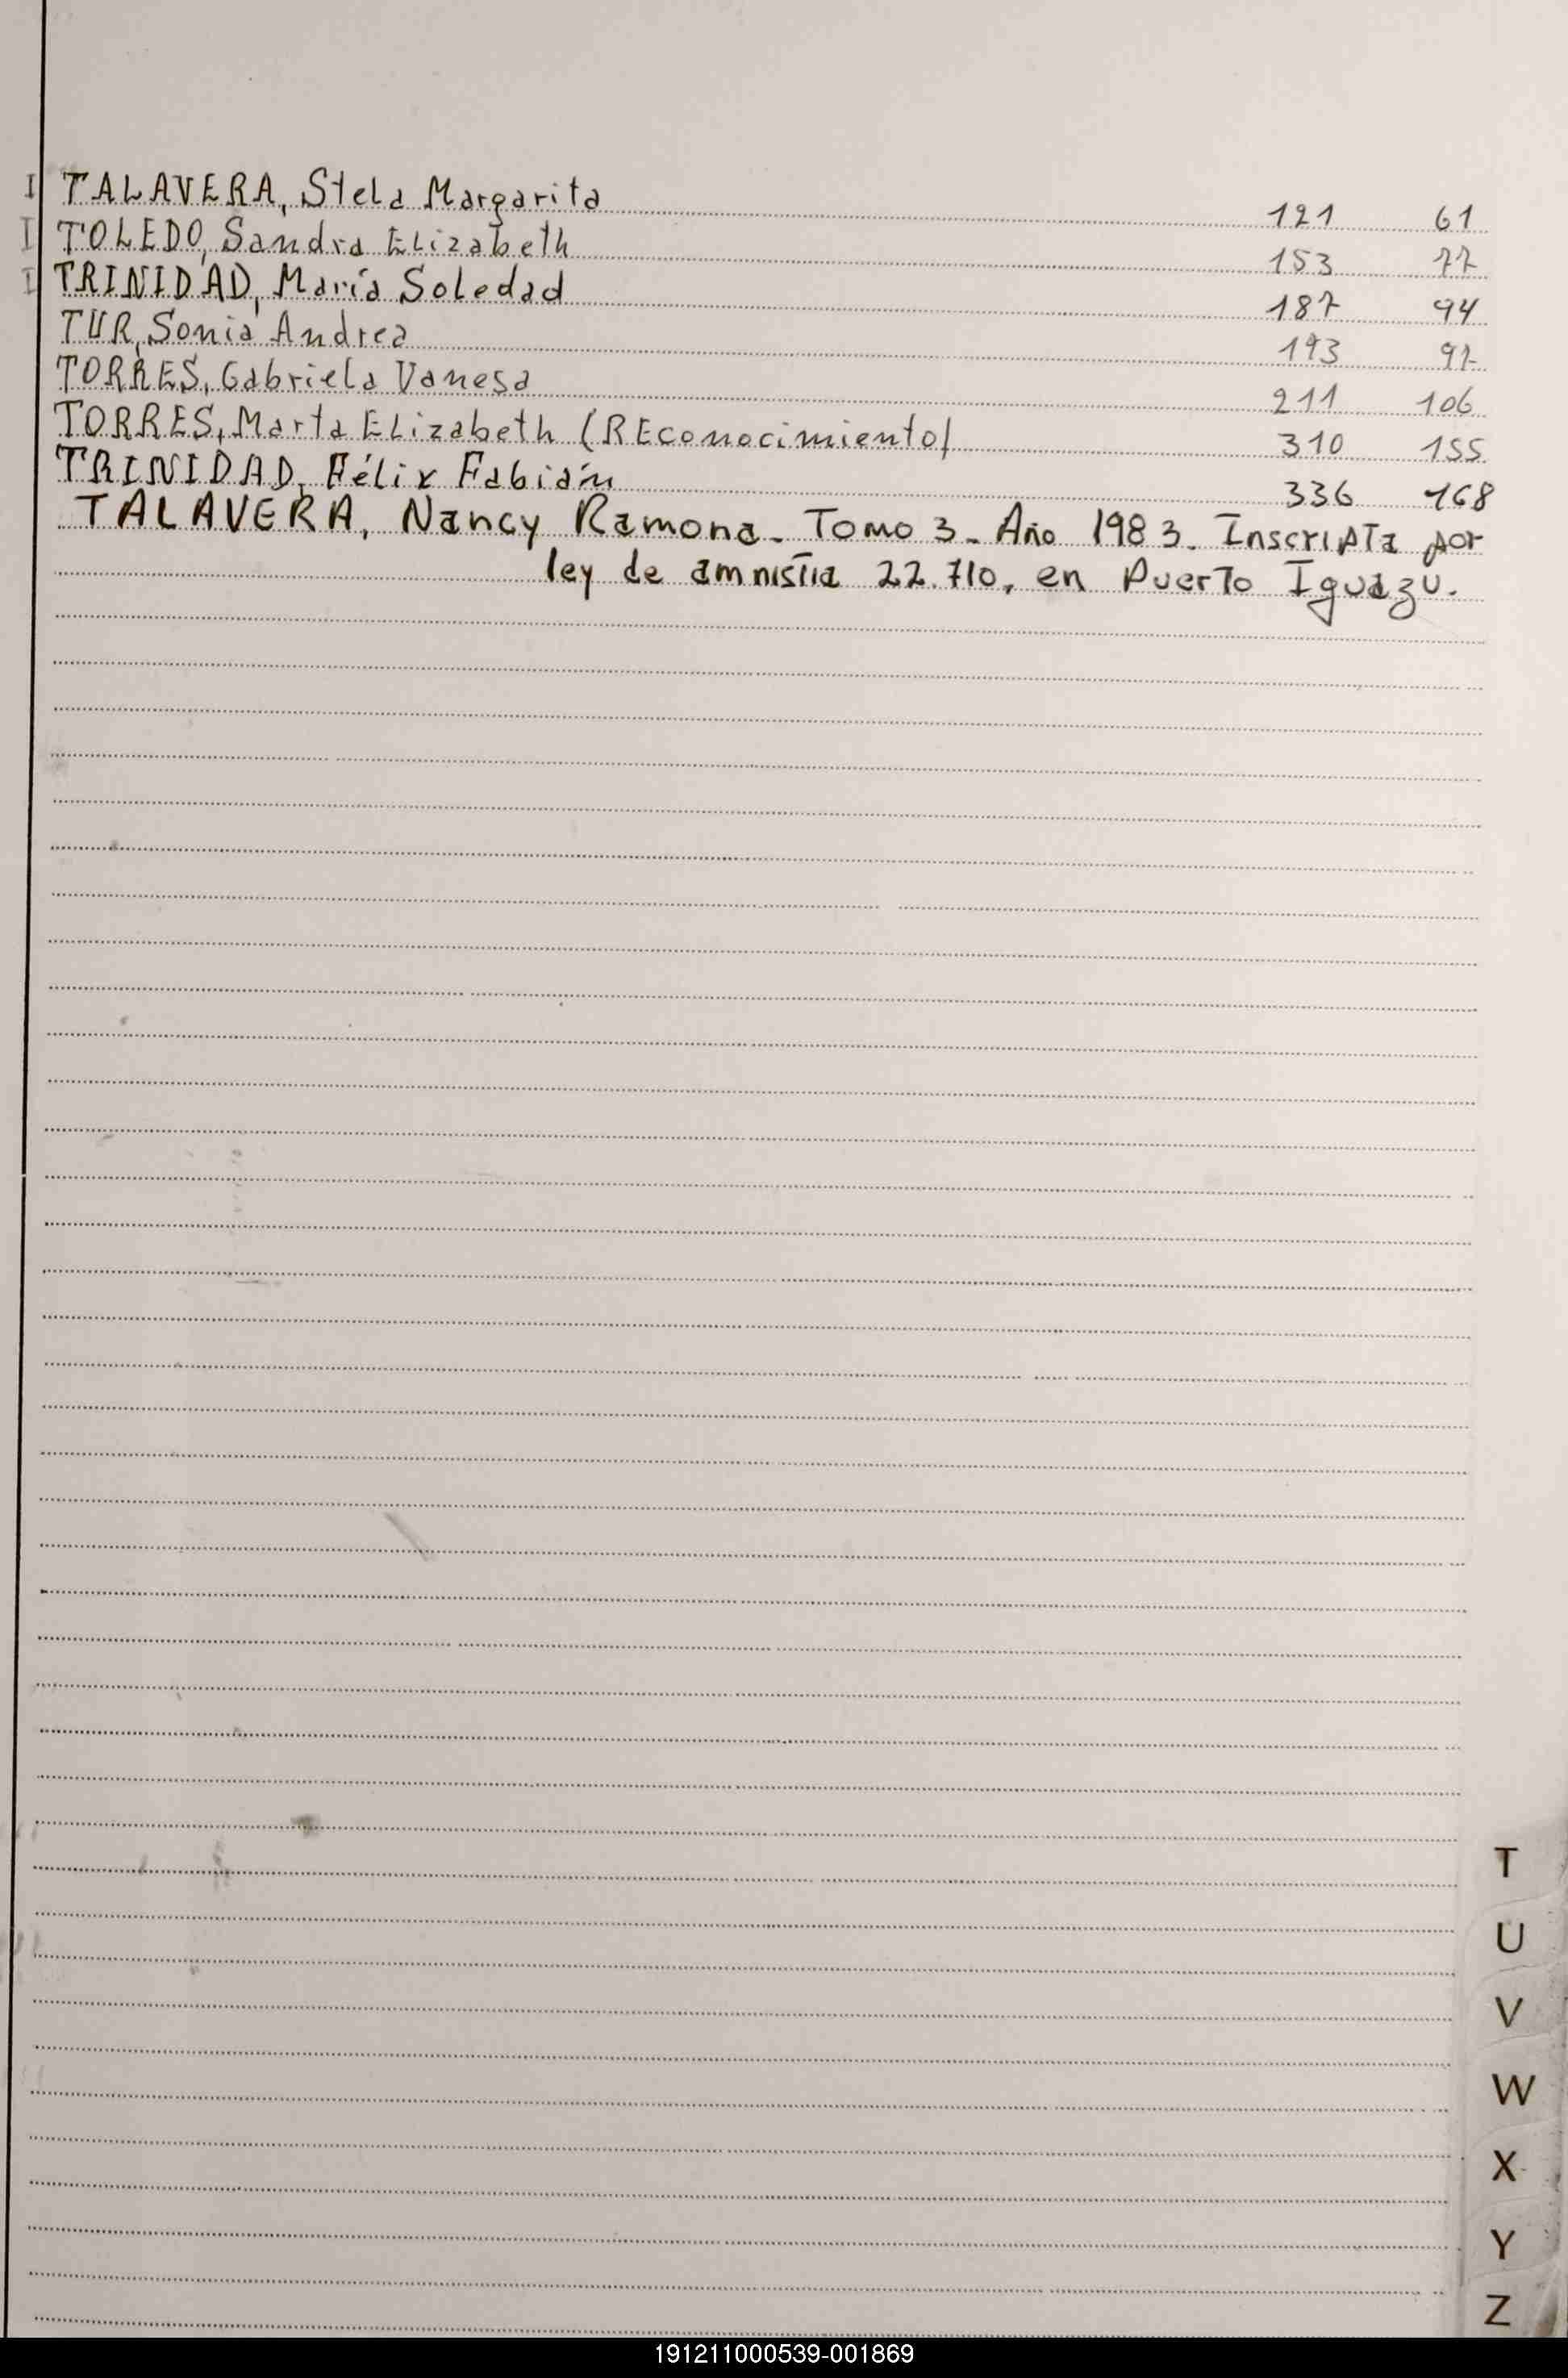 I TALAVERA, Stela Margarita 121 61
I TOLEDO, Sandra Elizabeth 153 77
I TRINIDAD, María Soledad 187 94
TUR, Sonia Andrea 193 97
TORRES, Gabriela Vanesa 211 106
TORRES, Marta Elizabeth (REconocimiento) 310 155
TRINIDAD, Félix Fabián 336 168
TALAVERA, Nancy Ramona. Tomo 3. Año 1983. Inscripta por
ley de amnistia 22.710, en Puerto Iguazu.
T
U
V
W
X
Y
Z
191211000539-001869